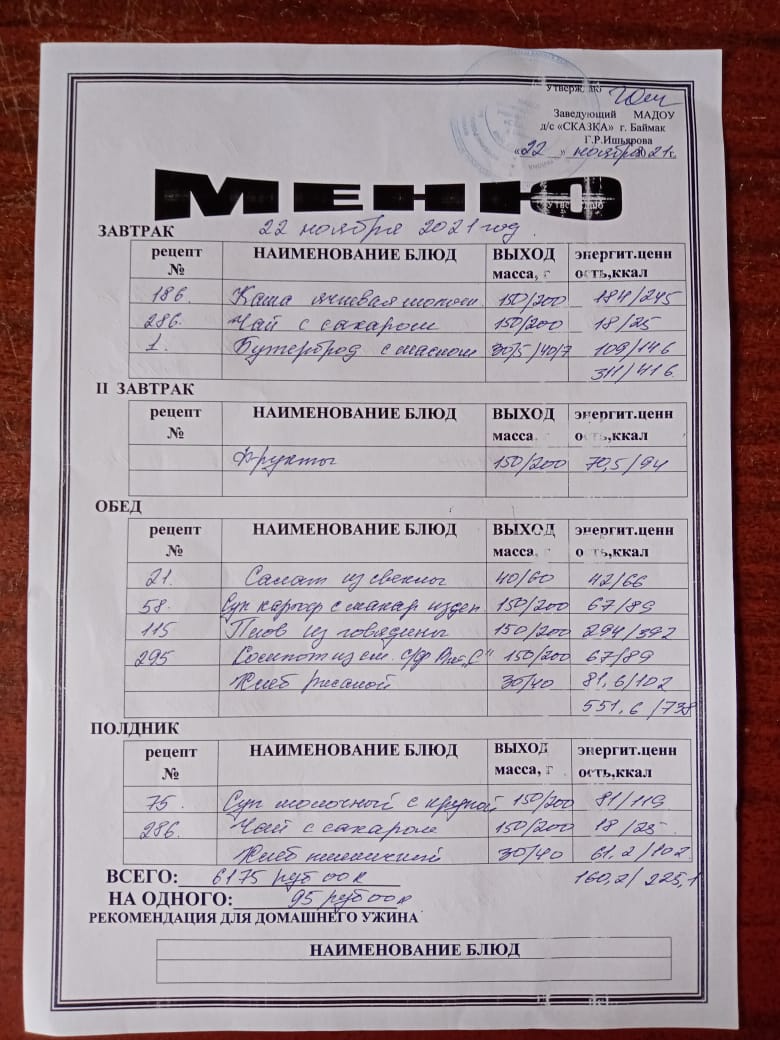 Утверждаю
Заведующий МАДОУ
д/с «СКАЗКА» г. Баймак
Г.Р.Ишьярова
«22» ноября 2021г.
МЕНЮ
22 ноября 2021 год.
ЗАВТРАК
рецепт № НАИМЕНОВАНИЕ БЛЮД ВЫХОД масса, г энергит.ценн ость,ккал
186. Каша ячневая молочн. 150/200 184/245
286. Чай с сахаром 150/200 18/25
1. Бутерброд с маслом 30/5/40/7 109/146
311/416
II ЗАВТРАК
рецепт № НАИМЕНОВАНИЕ БЛЮД ВЫХОД масса, энергит.ценн ость,ккал
Фрукты 150/200 70,5/94
ОБЕД
рецепт № НАИМЕНОВАНИЕ БЛЮД ВЫХОД масса, г энергит.ценн ость,ккал
21. Салат из свеклы 40/60 42/66
58. Суп картоф с макар издел 150/200 67/89
115 Плов из говядины 150/200 294/392
295 Компот из см. с/ф Вит „С" 150/200 67/89
Хлеб ржаной 30/40 81,6/102
551,6/738
ПОЛДНИК
рецепт № НАИМЕНОВАНИЕ БЛЮД ВЫХОД масса, г энергит.ценн ость,ккал
75. Суп молочный с крупой 150/200 81/119
286. Чай с сахаром 150/200 18/25.
Хлеб пшеничный 30/40 61,2/102
160,2/225,1
ВСЕГО: 6175 руб 00 к
НА ОДНОГО: 95 руб 00 к
РЕКОМЕНДАЦИЯ ДЛЯ ДОМАШНЕГО УЖИНА
НАИМЕНОВАНИЕ БЛЮД